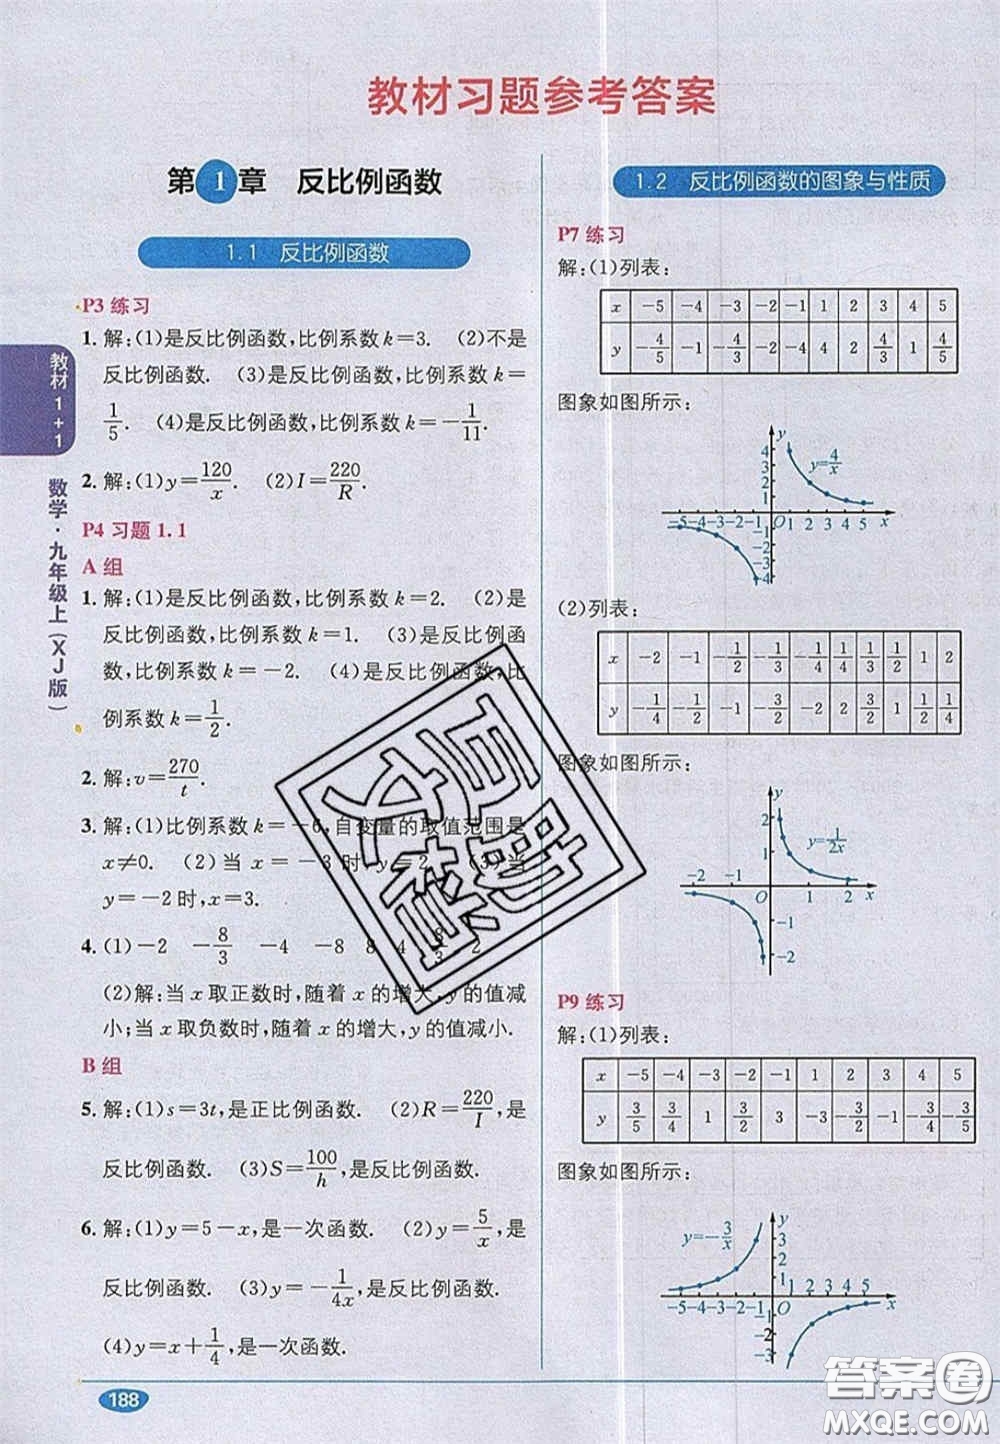 教材习题参考答案
第1章 反比例函数
1.1 反比例函数
P3 练习
1. 解:(1)是反比例函数,比例系数k=3. (2)不是
反比例函数. (3)是反比例函数,比例系数k=
1/5. (4)是反比例函数,比例系数k=-1/11.
2. 解:(1)y=120/x. (2)I=220/R.
P4 习题1.1
A组
1. 解:(1)是反比例函数,比例系数k=2. (2)是
反比例函数,比例系数k=1. (3)是反比例函
数,比例系数k=-2. (4)是反比例函数,比
例系数k=1/2.
2. 解:v=270/t.
3. 解:(1)比例系数k=-6,自变量的取值范围是
x≠0. (2)当x=-3时,y=2. (3)当
y=-2时,x=3.
4. (1)-2 -8/3 -4 -8 8 4 8/3 2
(2)解:当x取正数时,随着x的增大,y的值减
小;当x取负数时,随着x的增大,y的值减小.
B组
5. 解:(1)s=3t,是正比例函数. (2)R=220/I,是
反比例函数. (3)S=100/h,是反比例函数.
6. 解:(1)y=5-x,是一次函数. (2)y=5/x,是
反比例函数. (3)y=-1/4x,是反比例函数.
(4)y=x+1/4,是一次函数.
1.2 反比例函数的图象与性质
P7 练习
解:(1)列表:
x -5 -4 -3 -2 -1 1 2 3 4 5
y -4/5 -1 -4/3 -2 -4 4 2 4/3 1 4/5
图象如图所示:
y
4
3
2
1
y=4/x
-5 -4 -3 -2 -1 O 1 2 3 4 5 x
-1
-2
-3
-4
(2)列表:
x -2 -1 -1/2 -1/3 -1/4 1/4 1/3 1/2 1 2
y -1/4 -1/2 -1 -3/2 -2 2 3/2 1 1/2 1/4
图象如图所示:
y
2
1
y=1/2x
-2 -1 O 1 2 x
-1
-2
P9 练习
解:(1)列表:
x -5 -4 -3 -2 -1 1 2 3 4 5
y 3/5 3/4 1 3/2 3 -3 -3/2 -1 -3/4 -3/5
图象如图所示:
y
y=-3/x
3
2
1
-5 -4 -3 -2 -1 O 1 2 3 4 5 x
-1
-2
-3
教材1+1
数学·九年级上(XJ版)
188
答案圈
MXQE.COM